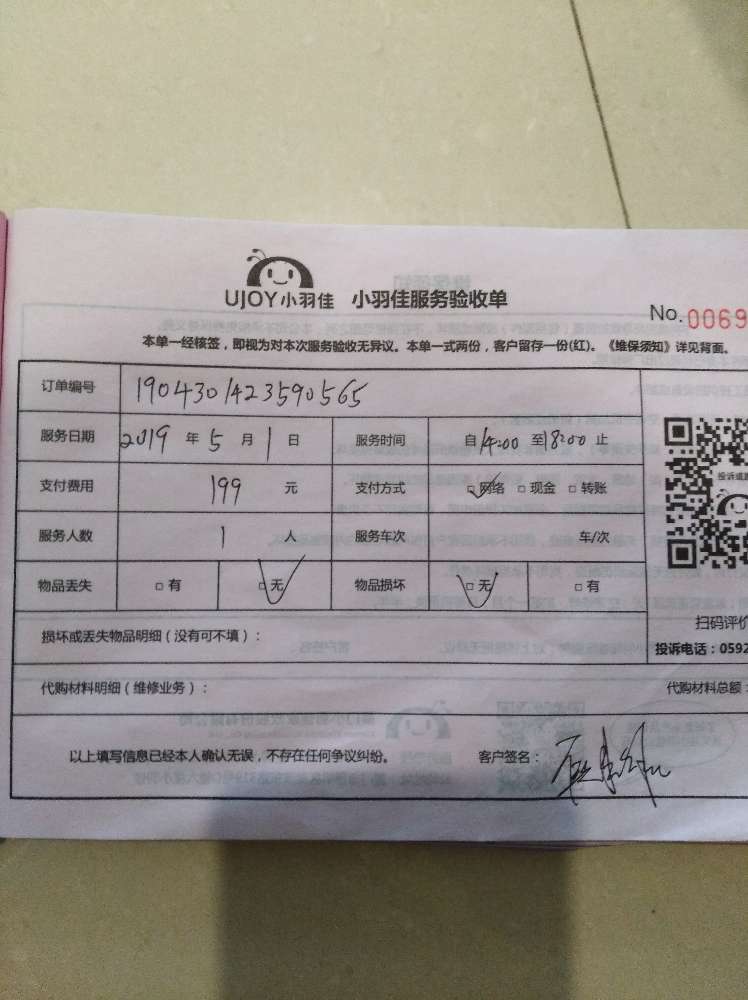 UJOY小羽佳 小羽佳服务验收单
No.0069
本单一经核签，即视为对本次服务验收无异议。本单一式两份，客户留存一份(红)。《维保须知》详见背面。
订单编号 190430142359056​5
服务日期 2019 年 5 月 1 日 服务时间 自14:00 至18:00 止
支付费用 199 元 支付方式 □网络 □现金 □转账
投诉追踪
服务人数 1 人 服务车次 车/次
物品丢失 □有 □无 物品损坏 □无 □有
扫码评价
损坏或丢失物品明细（没有可不填）：
投诉电话：0592
代购材料明细（维修业务）： 代购材料总额：
以上填写信息已经本人确认无误，不存在任何争议纠纷。 客户签名：